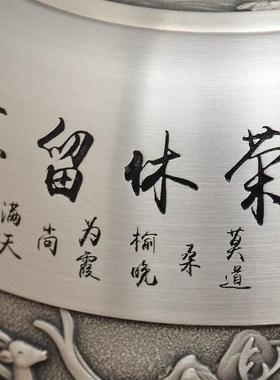 荣休留
莫道桑榆晚
为霞尚满天